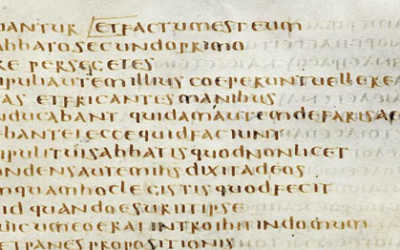 IANTUR ETFACTUMESTEUM
ABBATOSECUNDOPRIMO
RE PERSEGETES
IPULIAUTEMILLIUS COEPERUNTUELLERE
AS ETFRICANTES MANIBUS
NDUCABANT QUIDAMAUTEMDEFARISAE
EBANTEIECCEQUIDFACIUNT
IPULITUISABBATISQUODNONLICET
ONDENSAUTEMIHSDIXITADEOS
MQUAMHOCLEGISTISQUODFECIT
ID QUANDOESURIITIPSE
UICUMEOERATINTROIBITINDOMUM
ETPANESPROPOSITIONIS